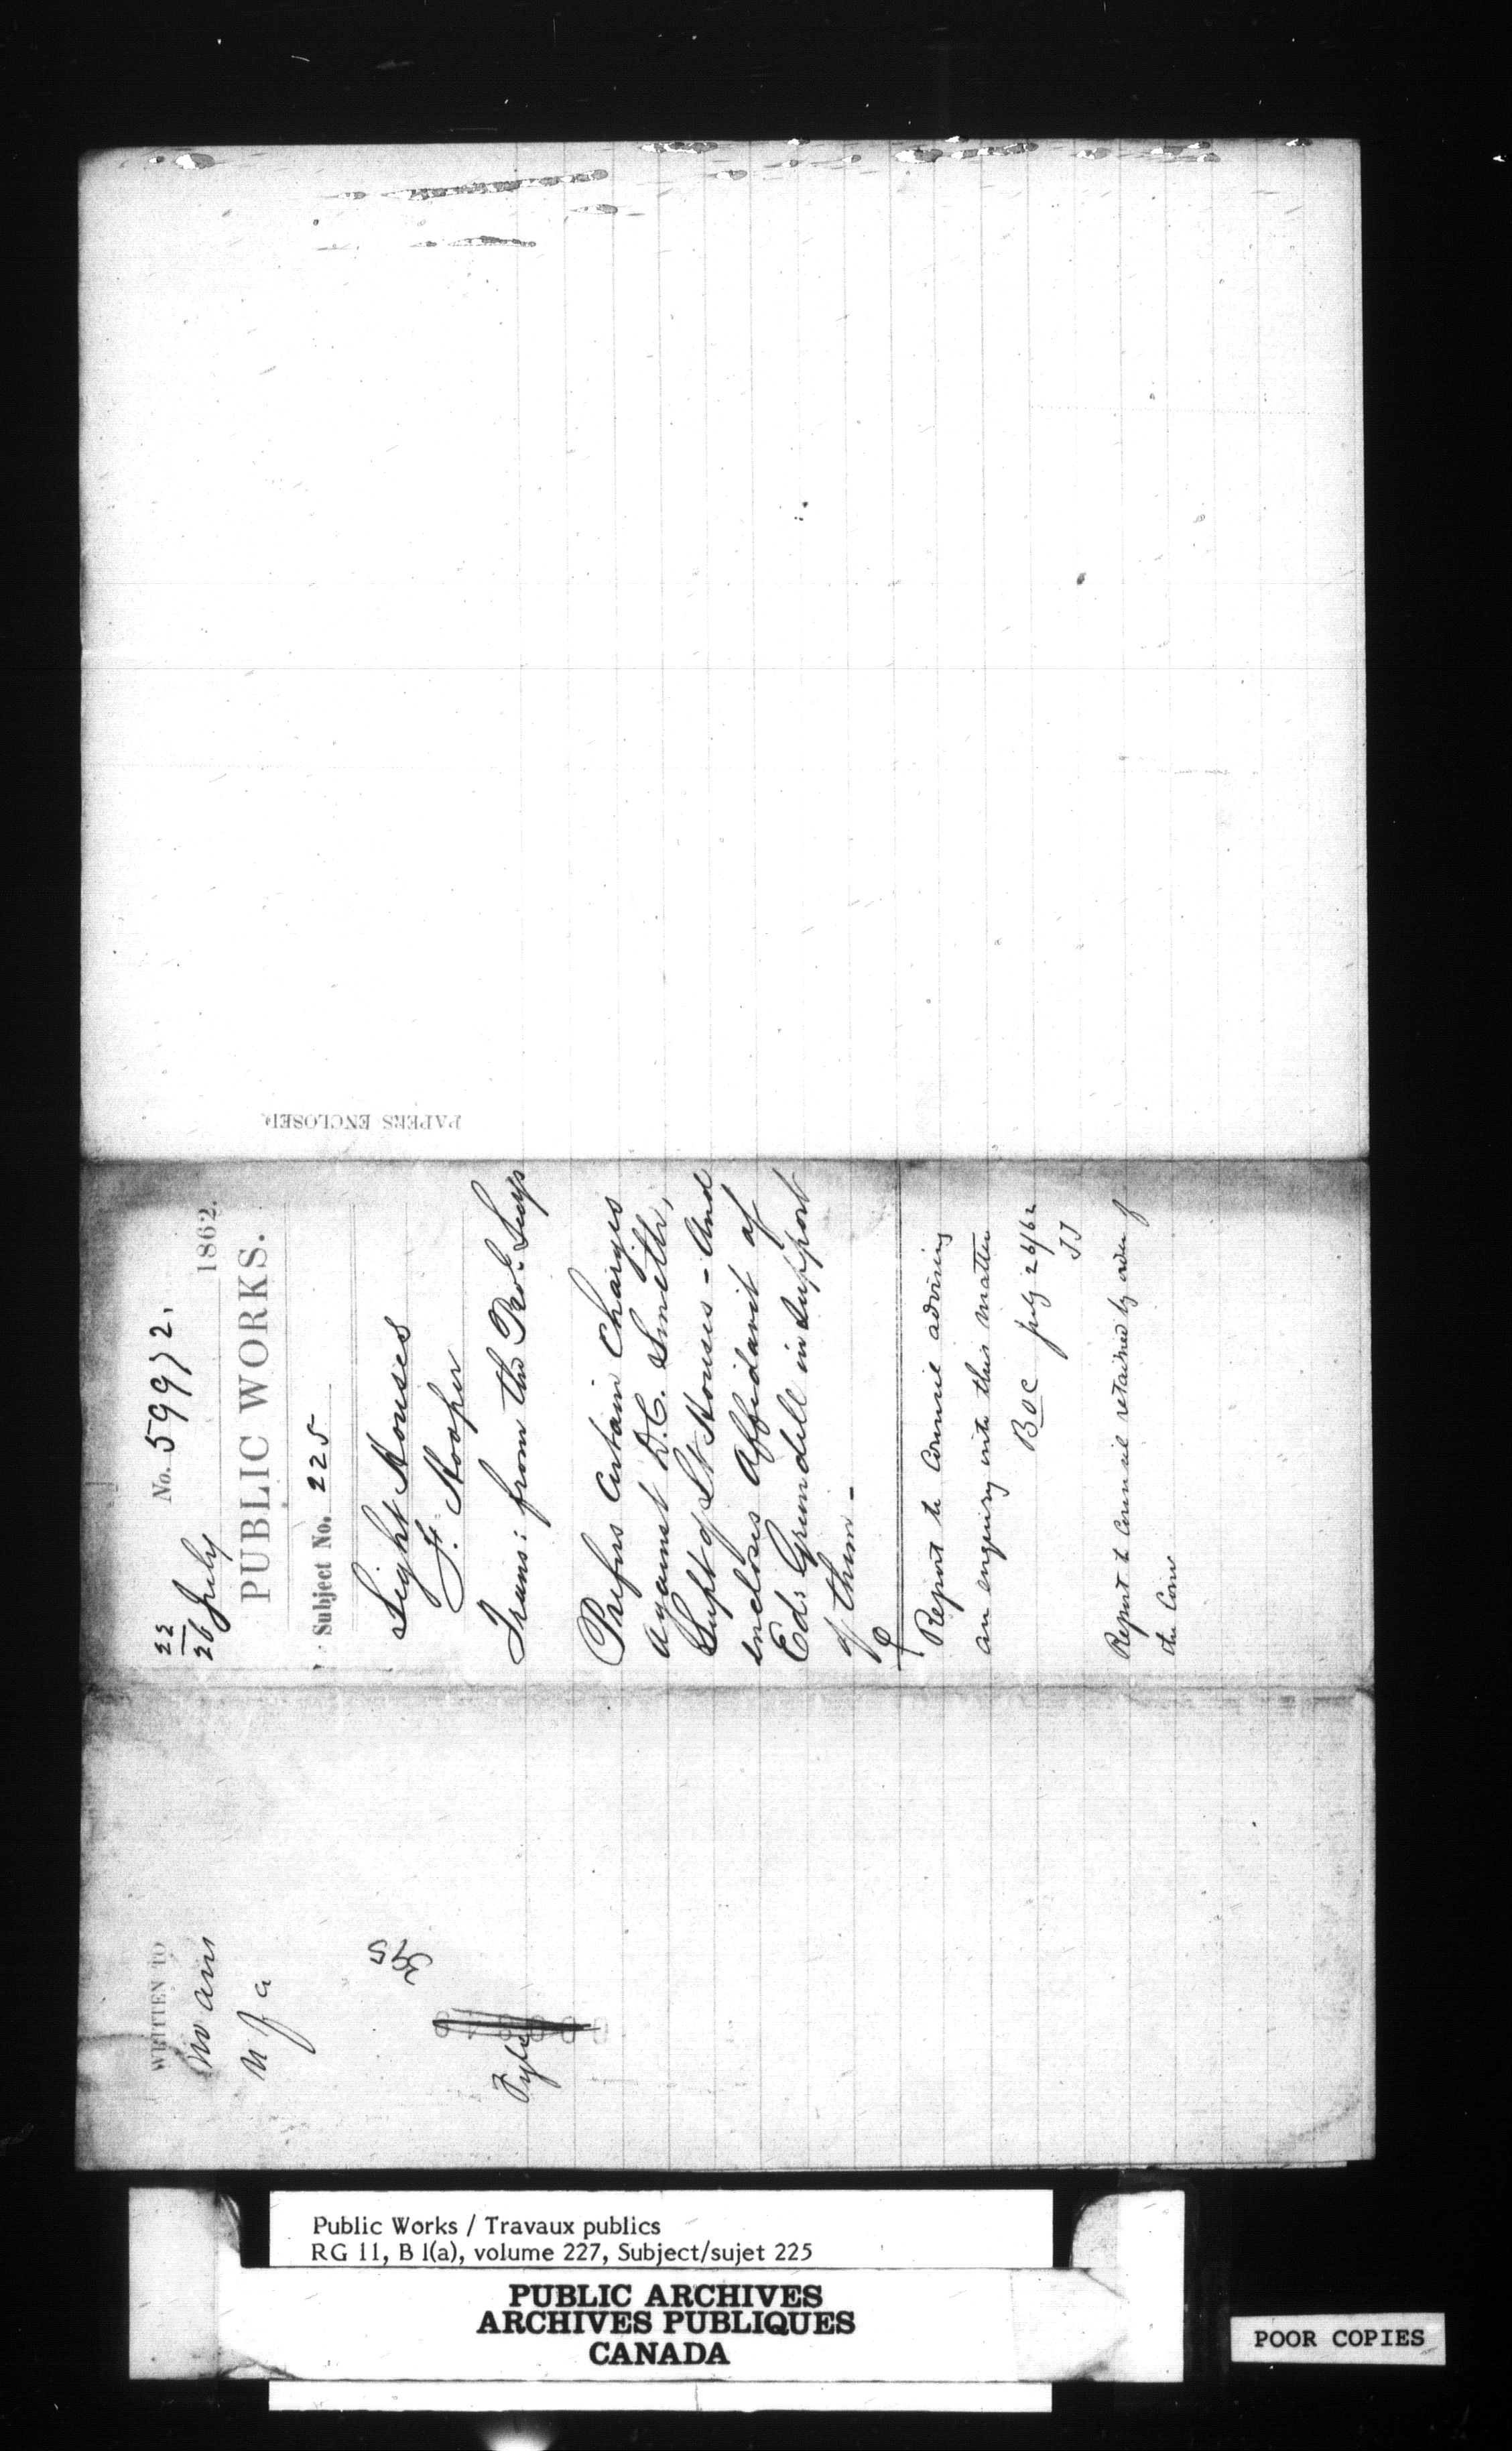 No. 59972.
22
26 July 1862.
PUBLIC WORKS.
Subject No. 225
Light Houses
F. Hooper
Trans: from the Prol. Secy
Prefers certain Charges
against D.C. Smith,
Supt of Lt Houses - And
encloses Affidavit of
Ed: Grundell in support
of them -
Report to Council advising
an enquiry into this matter
July 26/62
Report to Council retained by order of
the Com
PAPERS ENCLOSED.
WRITTEN TO
No ans
395
Fyle
Public Works / Travaux publics
RG 11, B 1(a), volume 227, Subject/sujet 225
PUBLIC ARCHIVES
ARCHIVES PUBLIQUES
CANADA
POOR COPIES